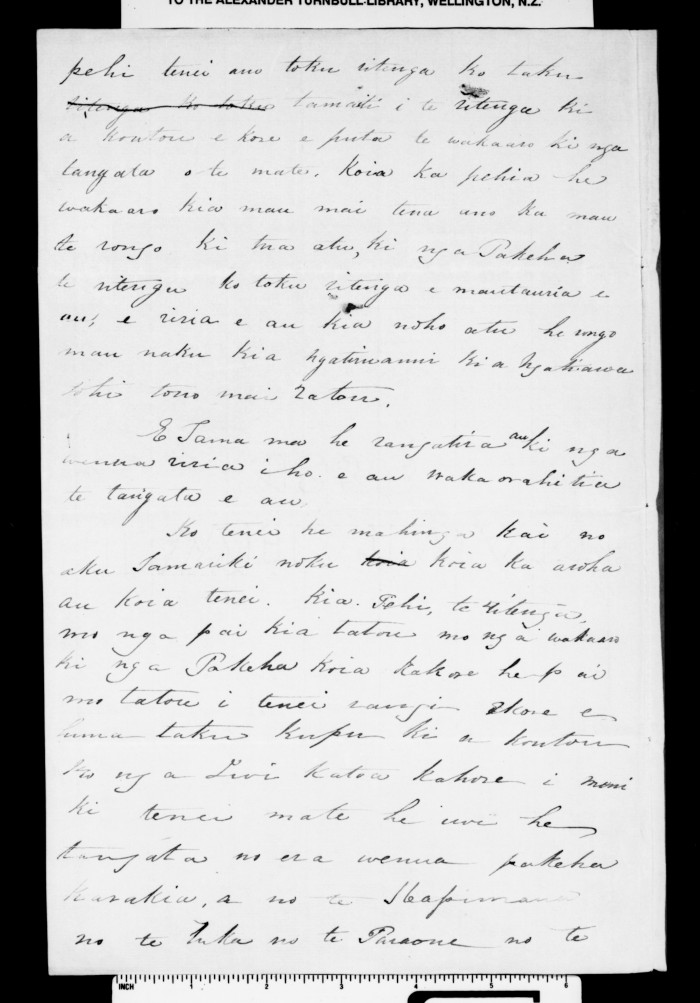 TO THE ALEXANDER TURNBULL LIBRARY, WELLINGTON, N.Z.
pehi tenei ano toku ritenga ko taku
ritenga ko toku tamaiti i te ritenga ki
a koutou e kore e puta te wakaaro ki nga
tangata o te mate. Koia ka pehia he
wakaaro kia mau mai tena ano ka mau
te rongo ki tua atu, ki nga Pakeha
te ritenga ko toku ritenga e mautauria e
au, e riria e au kia noho atu he rongo
mau naku kia Ngatiruanui kia Ngatiawa
tono mai ratou.
E Tama ma he rangatira au ki nga
wenua riria iho e au waka orahitia
te tangata e au
Ko tenei he mahinga kai no
aku Tamariki noku koia koia ka aroha
au koia tenei. Kia. Pehi, te ritenga,
mo nga pai kia tatou mo nga wakaaro
ki nga Pakeha koia kakore he pai
mo tatou i tenei rangi ekore e
huna taku kupu ki a koutou
ko nga Iwi katoa kahore i
ki tenei mate he iwi he
tangata no era wenua pakeha
karakia, a no te
no te no te Paraone no te
INCH 1 2 3 4 5 6